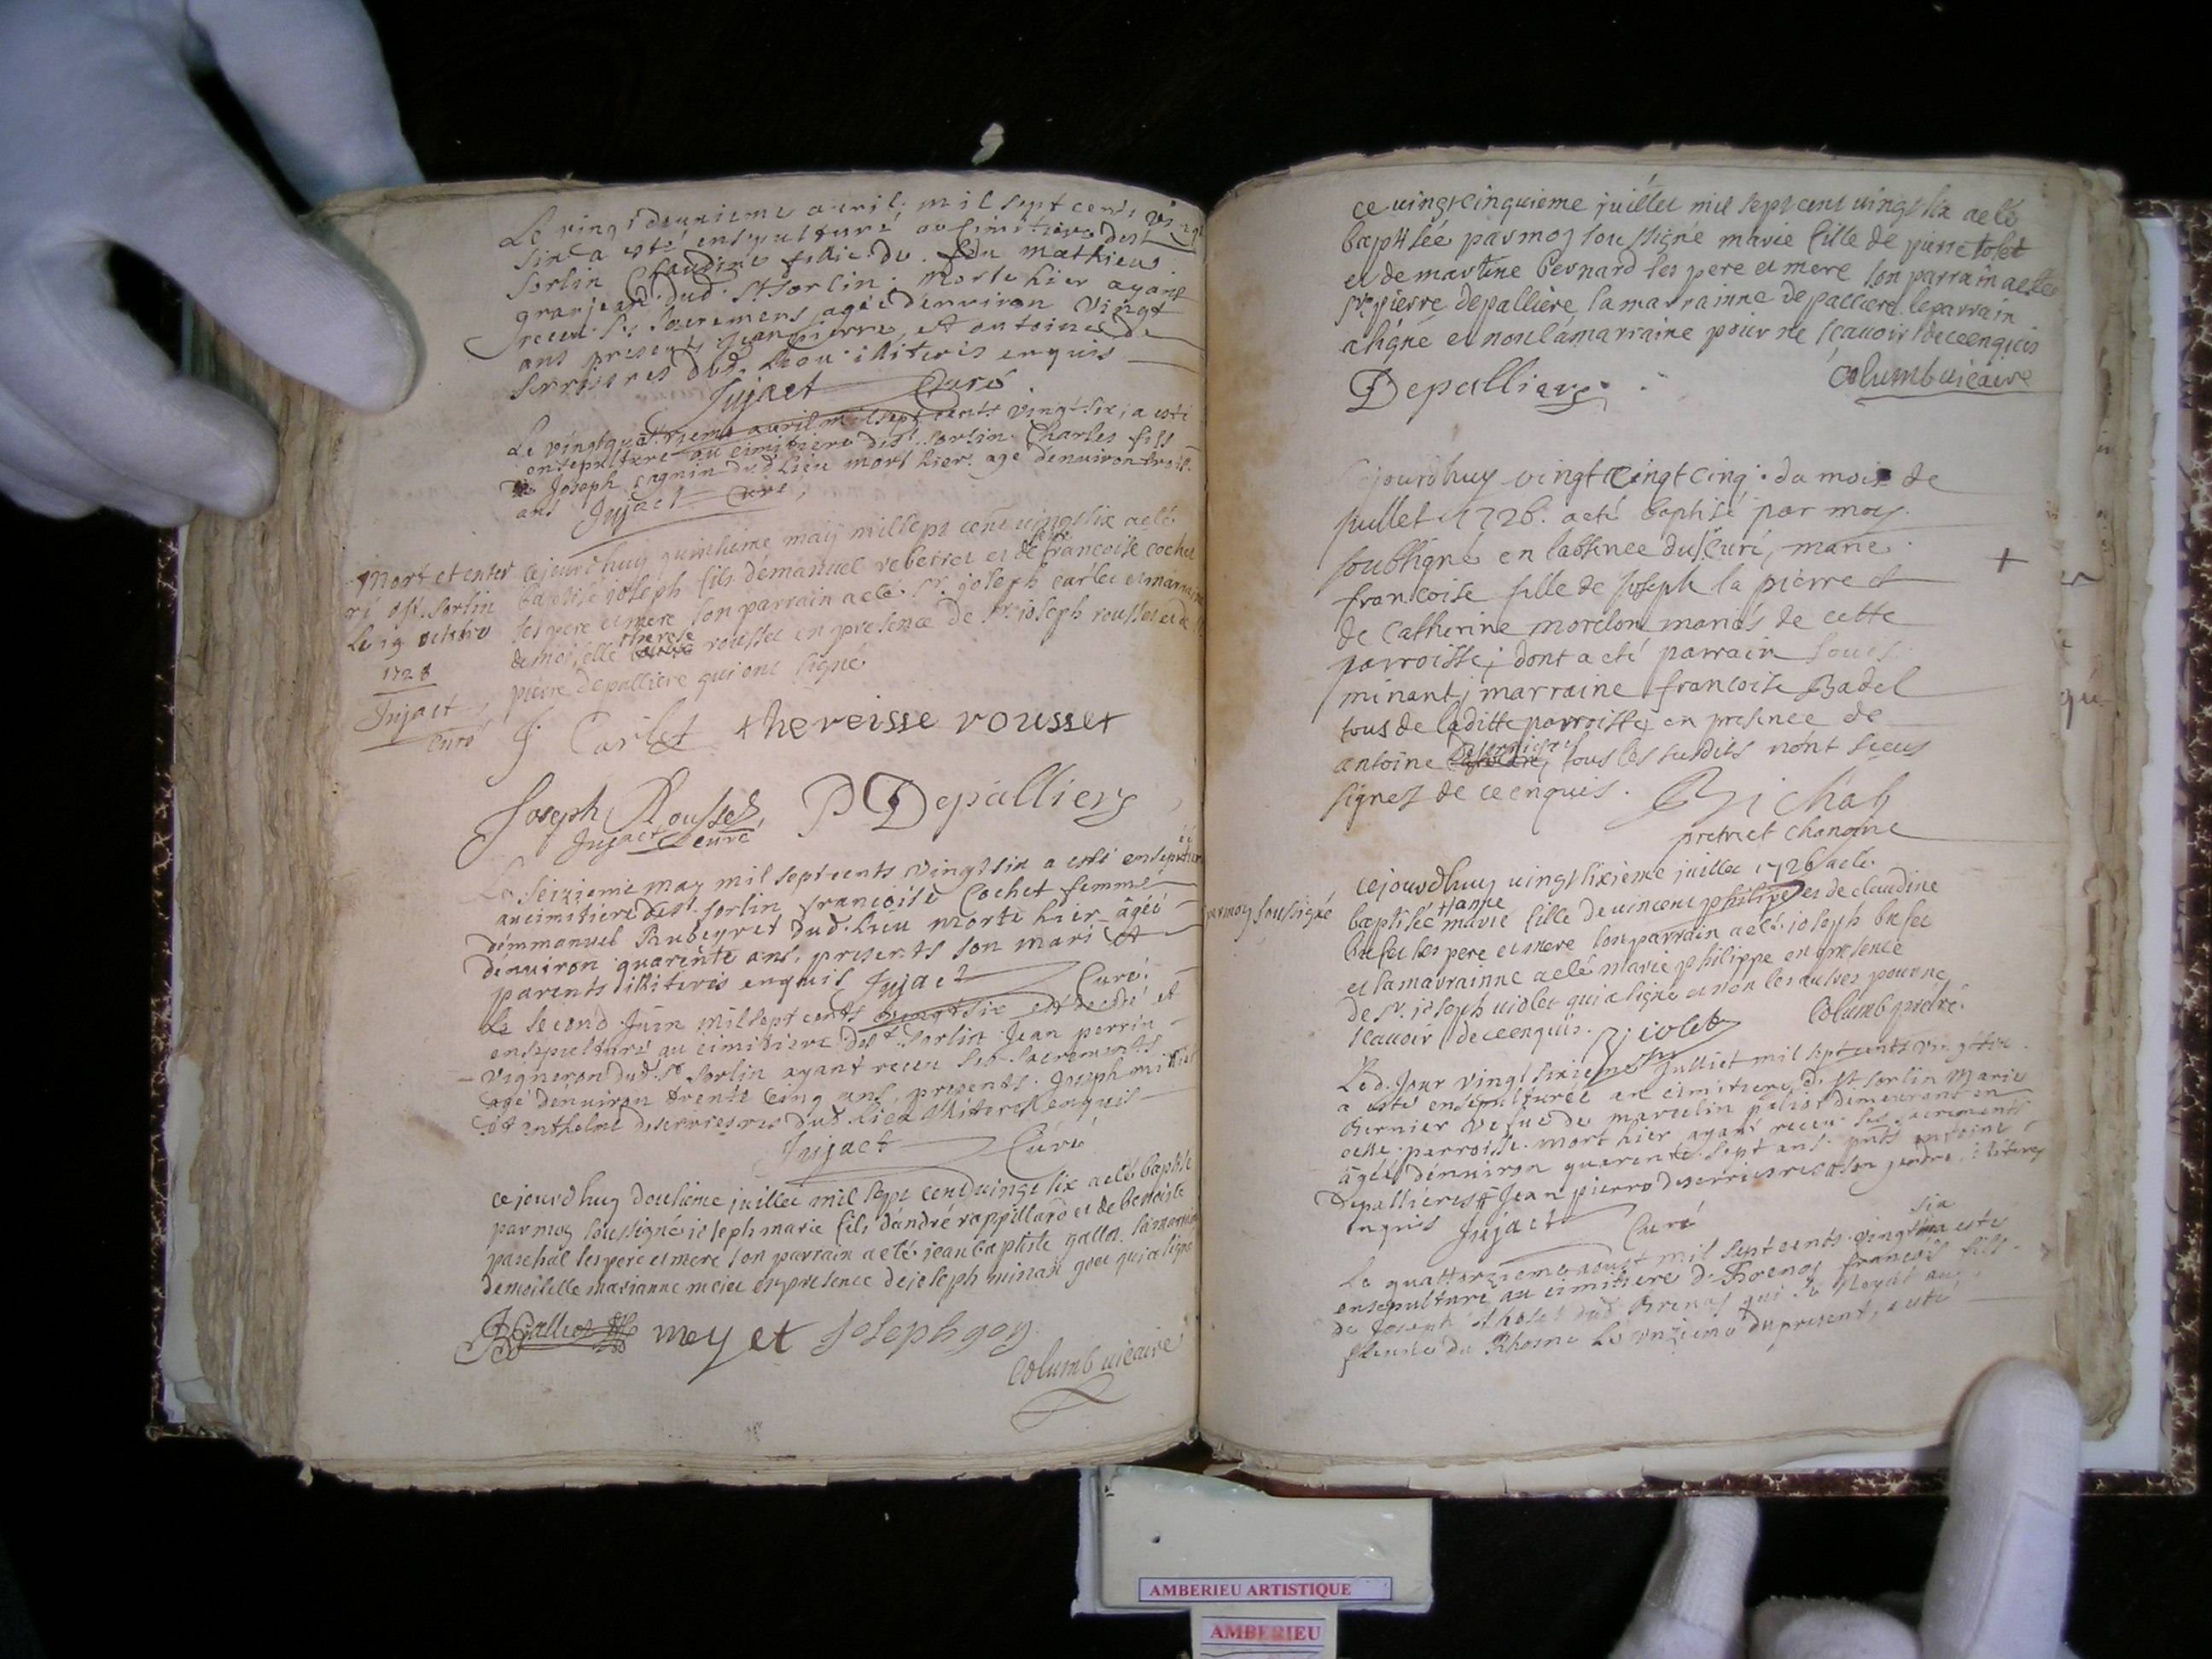 Le vingt deuxieme avril mil sept cents vingt
six a esté ensepulturé au cimitiere de st
Sorlin Claudine fillie de feu mathieu
granjean dud. St Sorlin morte hier ayant
receu ses sacremens, agée denviron vingt
ans presents Jean pierre, et antoine de
serrieres dud. lieu illiteris enquis
Jujact Curé
Le vingt quattrieme avril mil sept cents vingt six, a esté
ensepulturé au cimitiere de st. Sorlin Charles fils
de Joseph dud lieu mort hier. agé denviron trois
ans Jujact Curé
Mort et enter
ré a st. Sorlin
le 19 octobre
1728
Jujact
Curé
cejourdhuy quinsieme may mil sept cent vingt six a eté
baptisé joseph fils démanuel rebeiret et de francoise cochet
ses pere et mere son parrain a eté Sr. joseph carlet et marraine
demoiselle therese rousset en presence de Sr. joseph rousset et de
pierre depalliere qui ont signé
J. Carlet thereisse rousset
Joseph Rousset, P Depalliere
Jujact curé
Le seizieme may mil sept cents vingt six a esté ensepulturée
au cimitiere de st. Sorlin francoise Cochet femme
démmanuel Rubeyret dud. lieu morte hier agéé
dénviron quarente ans, presents son mari et
parents illiteris enquis Jujact Curé.
Le second Juin mil sept cents vingt six est decedé et
ensepulturé au cimitiere de st Sorlin Jean perrin
vigneron dud. St Sorlin ayant receu ses sacrements
agé denviron trente cinq ans, presents. Joseph
et anthelme deserrieres dud lieu illiteres enquis
Jujact Curé
cejourdhuy dousieme juillet mil sept cent vingt six a eté baptisé
par moy soussigné joseph marie fils d'andré rappillard et de benoiste
paschal ses pere et mere son parrain a eté jean baptiste galla. la marraine
demoiselle marianne meiet en presence de joseph minan goei qui a signé
meyet Joseph goy
Columb vicaire
ce vingt cinquieme juillet mil sept cent vingt six a eté
baptisée par moy soussigné marie fille de pierre tolet
et de martine bernard ses pere et mere son parrain a eté
Sr. pierre depallière, la marrainne depalliere le parrain
a signé et non la marraine pour ne scavoir de ce enquis
Depalliere Columb vicaire
cejourdhuy vingt cinq: du mois de
juillet 1726. a eté baptisé par moy
soubsigné en labsence du sr Curé, marie
francoise fille de Joseph la pierre et
de Catherine morelon mariés de cette
parroisse; dont a eté parrain Louis
minant, marraine francoise Badel
tous de laditte parroisse, en presence de
antoine deserrieres, tous les susdits nont sceus
signez de ce enquis. Bichat
pretre et chanoine
cejourdhuy vingt sixieme juillet 1726 a eté
par moy soussigné
baptisée marie anne fille de vincent philipe et de claudine
bufet ses pere et mere son parrain a eté joseph bufet
et la marrainne a eté marie philippe en presence
de Sr. joseph violet qui a signé et non les autres pour ne
scavoir de ce enquis. Violet Columb prêtre.
Led. Jour vingt sixieme Julliet mil sept cents vingt six
a esté ensepulturéé au cimitiere de st Sorlin Marie
Bernier vefve de marcelin demeurant en
cette parroisse. mort hier ayant receu ses sacrements
agéé dénviron quarente sept ans. pnts antoine
Depallieres et Jean pierre deserrieres son gendre, illiteres
enquis Jujact Curé
Le quattorzieme aoust mil sept cents vingt six a esté
ensepulturé au cimitiere de Brenas francois fils
de Joseph tholet dud Brenas qui se noyat au
fleuve du Rhosne le onzieme du present, a esté
AMBERIEU ARTISTIQUE
AMBERIEU